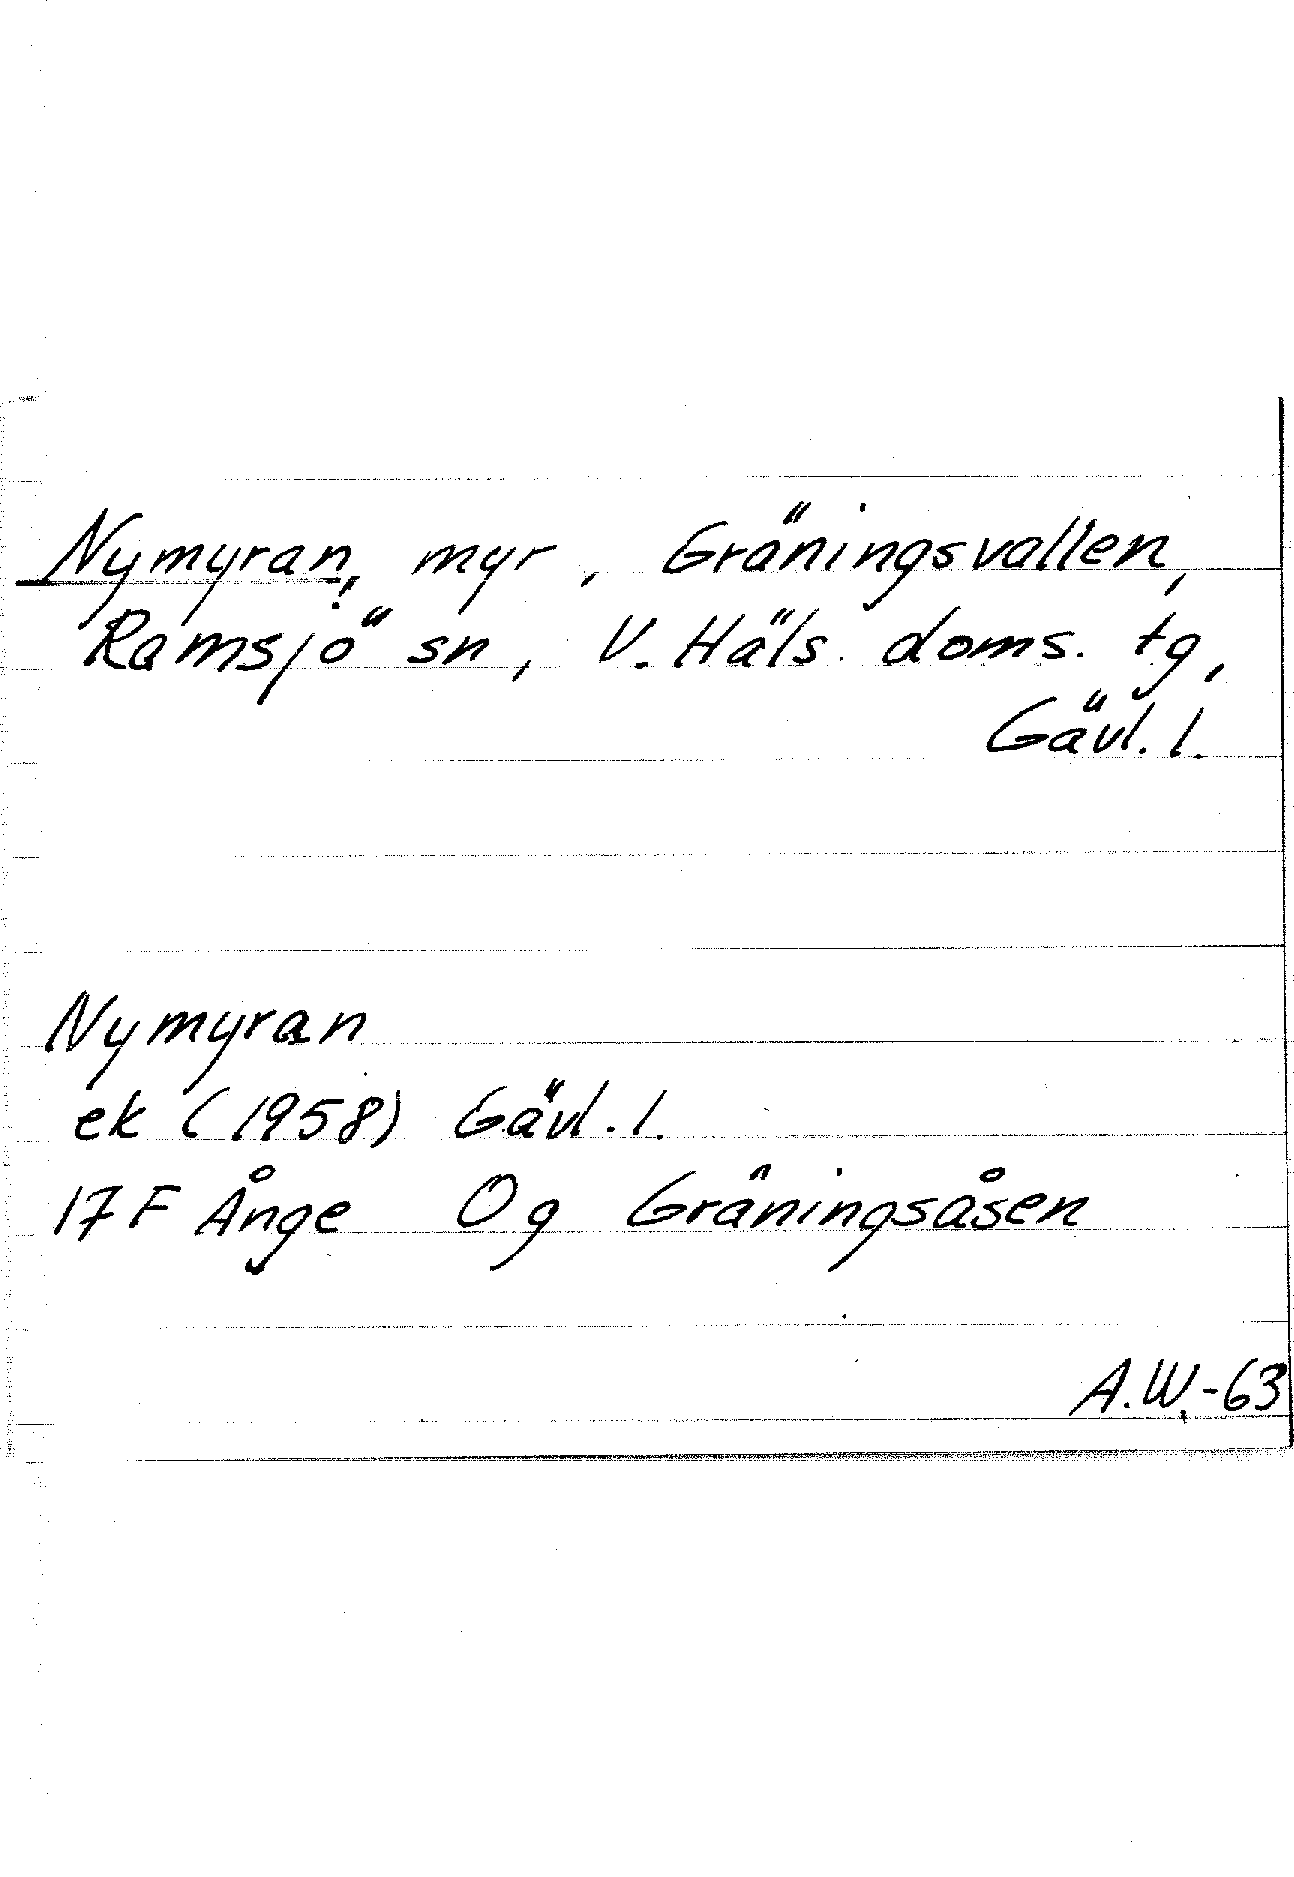 Nymyran, myr, Gräningsvallen,
Ramsjö sn, V. Häls. doms. tg,
Gävl. l.
Nymyran
ek (1958) Gävl. l.
17 F Ånge Og Gräningsåsen
A.W.-63